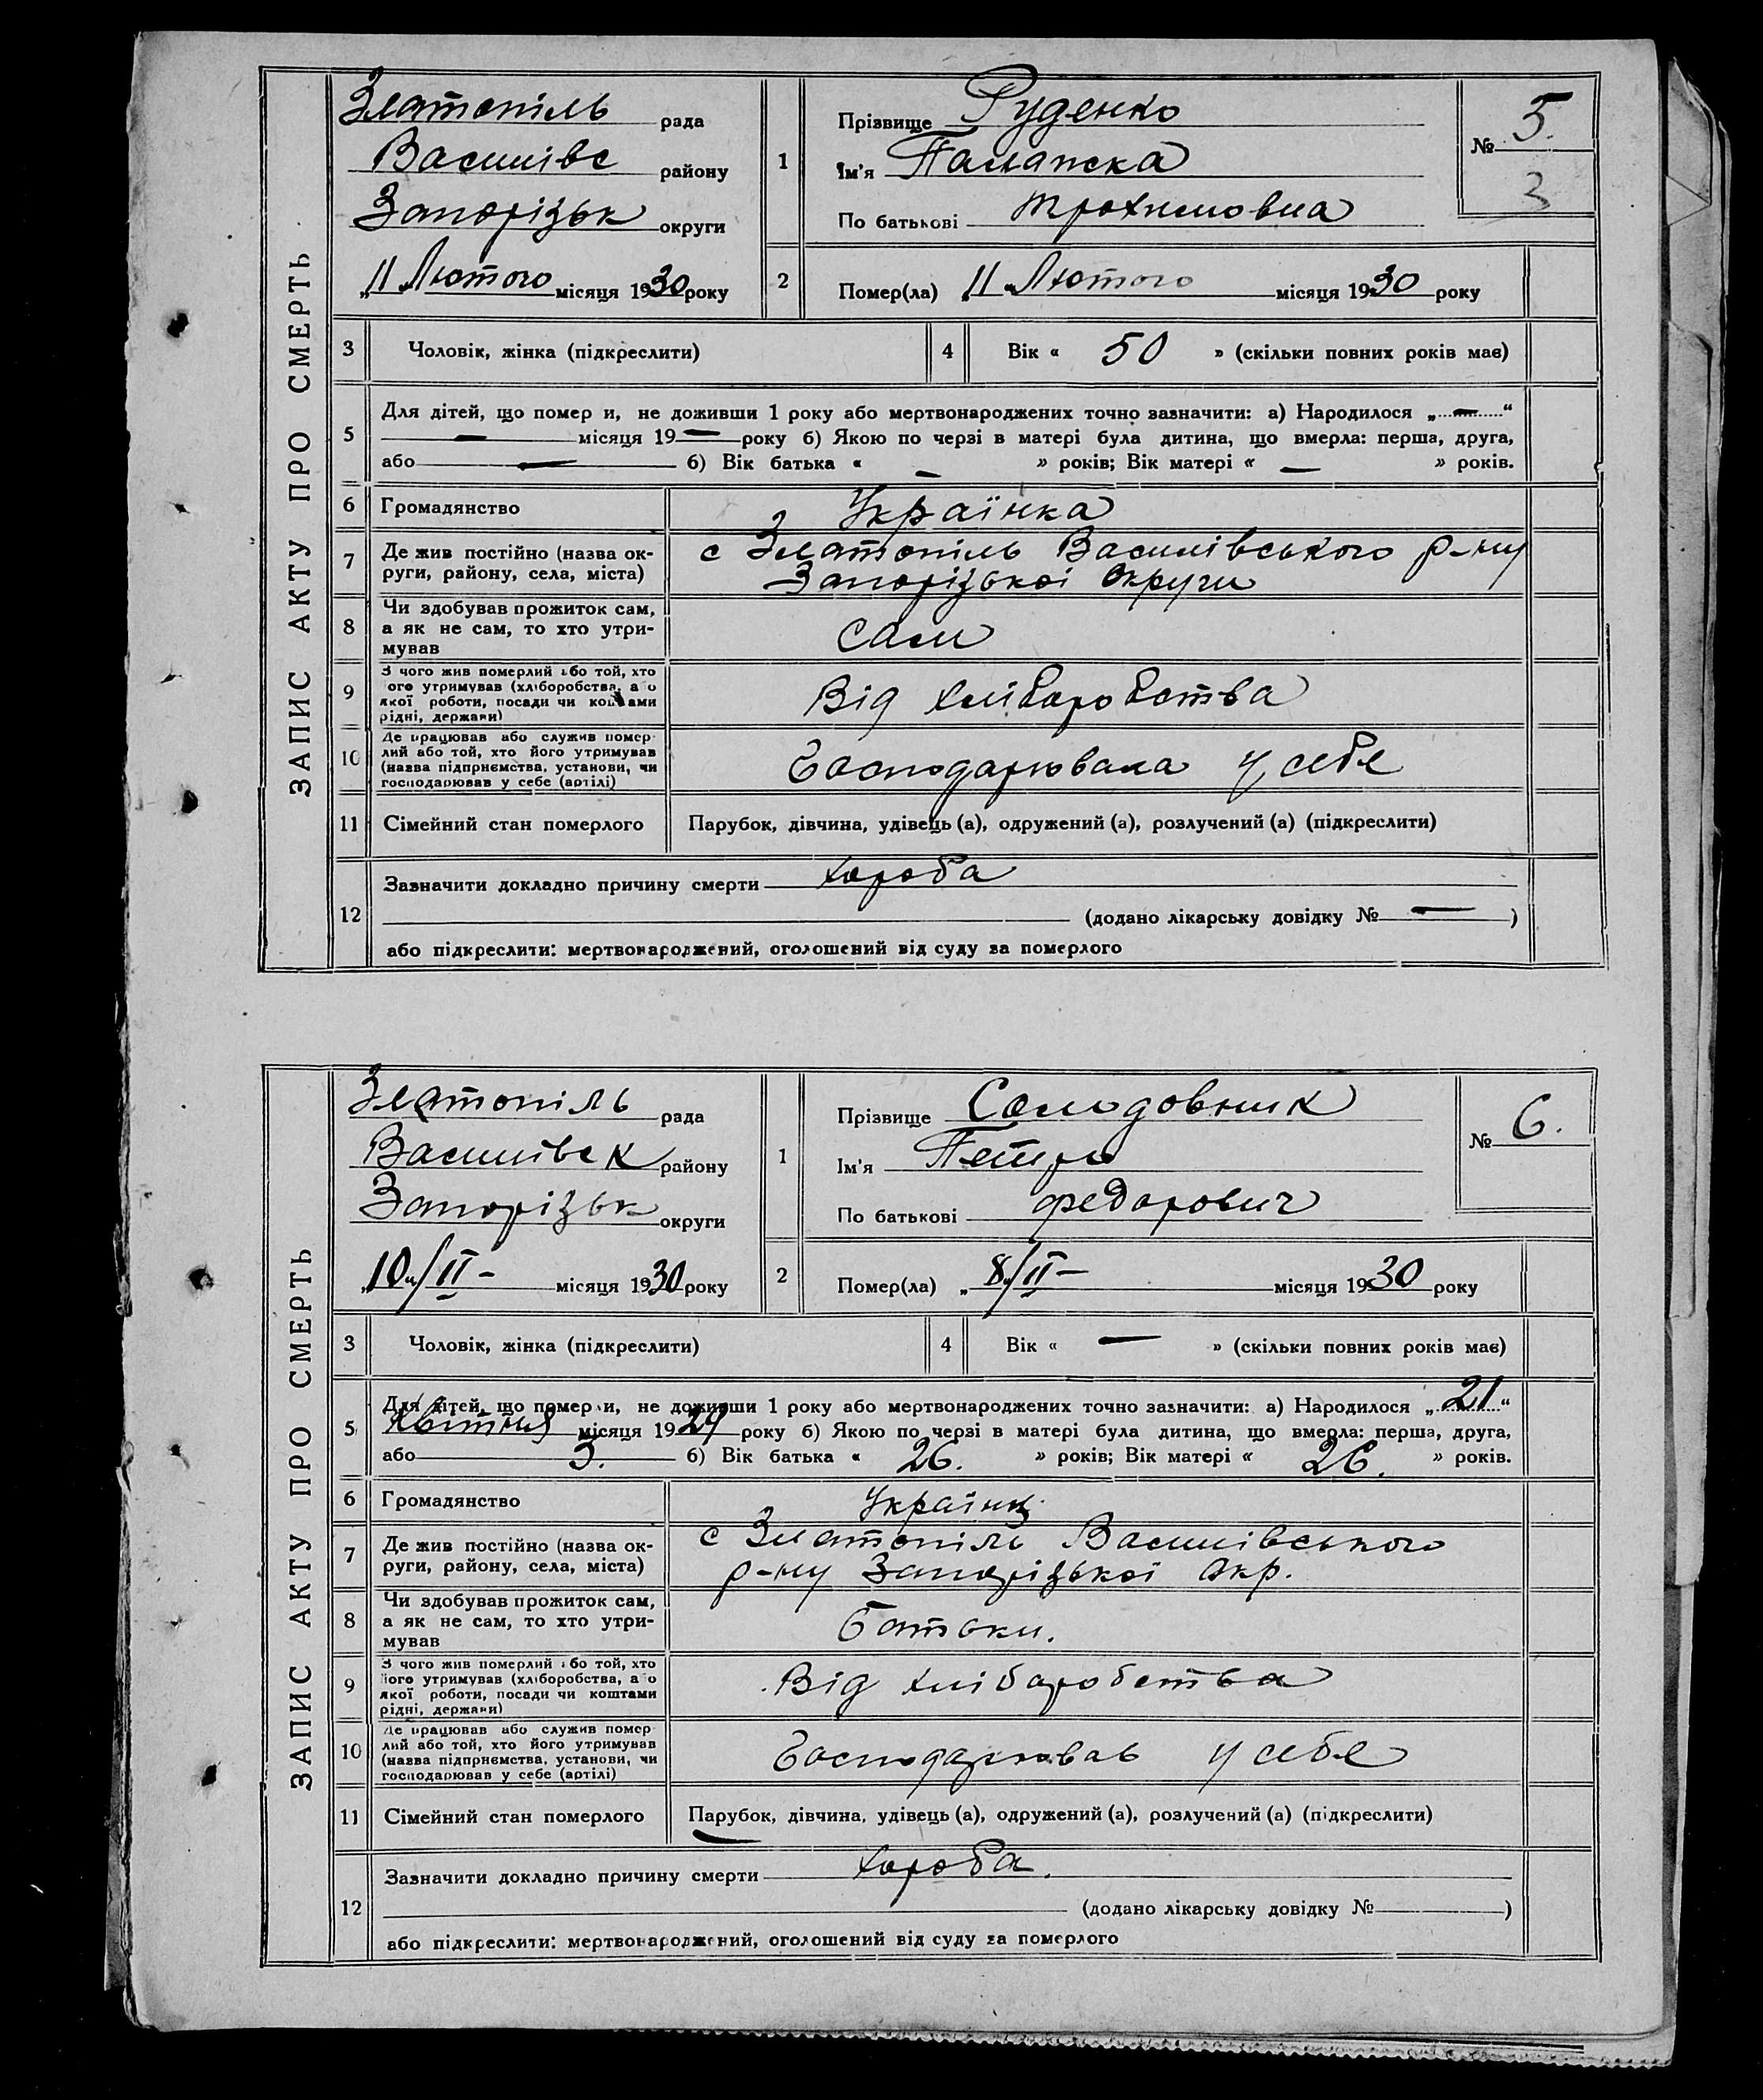 ЗАПИС АКТУ ПРО СМЕРТЬ
Златопіль рада
Василівс району
Запорізьк округи
„11„ Лютого місяця 1930 року
1
Прізвище Руденко
Ім'я Палажка
По батькові Трохимовна
№ 5.
3
2
Помер(ла) „11„ Лютого місяця 1930 року
3 Чоловік, жінка (підкреслити)
4 Вік « 50 » (скільки повних років має)
5 Для дітей, що помер и, не доживши 1 року або мертвонароджених точно зазначити: а) Народилося „—“
— місяця 19— року б) Якою по черзі в матері була дитина, що вмерла: перша, друга,
або — б) Вік батька « — » років; Вік матері « — » років.
6 Громадянство Українка
7 Де жив постійно (назва ок-
руги, району, села, міста)
с Златопіль Василівського р-ну
Запорізької Округи
8 Чи здобував прожиток сам,
а як не сам, то хто утри-
мував
Сам
9 З чого жив померлий або той, хто
ого утримував (хліборобства, або
якої роботи, посади чи коштами
рідні, держави)
Від хліборобства
10 Де працював або служив помер-
лий або той, хто його утримував
(назва підприємства, установи, чи
господарював у себе (артілі)
Господарювала у себе
11 Сімейний стан померлого Парубок, дівчина, удівець (а), одружений (а), розлучений (а) (підкреслити)
12 Зазначити докладно причину смерти хороба
(додано лікарську довідку № — )
або підкреслити: мертвонароджений, оголошений від суду за померлого
ЗАПИС АКТУ ПРО СМЕРТЬ
Златопіль рада
Василівськ району
Запорізьк округи
„10„/II- місяця 1930 року
1
Прізвище Солодовник
Ім'я Петро
По батькові Федорович
№ 6.
2
Помер(ла) „8/II- місяця 1930 року
3 Чоловік, жінка (підкреслити)
4 Вік « — » (скільки повних років має)
5 Для дітей, що помер и, не доживши 1 року або мертвонароджених точно зазначити: а) Народилося „21“
Квітня місяця 1929 року б) Якою по черзі в матері була дитина, що вмерла: перша, друга,
або 3. б) Вік батька « 26. » років; Вік матері « 26. » років.
6 Громадянство Українц
7 Де жив постійно (назва ок-
руги, району, села, міста)
с Златопіль Василівського
р-ну Запорізької Окр.
8 Чи здобував прожиток сам,
а як не сам, то хто утри-
мував
Батьки.
9 З чого жив померлий або той, хто
його утримував (хліборобства, або
якої роботи, посади чи коштами
рідні, держави)
Від хліборобства
10 Де працював або служив помер-
лий або той, хто його утримував
(назва підприємства, установи, чи
господарював у себе (артілі)
Господарював у себе
11 Сімейний стан померлого Парубок, дівчина, удівець (а), одружений (а), розлучений (а) (підкреслити)
12 Зазначити докладно причину смерти хороба.
(додано лікарську довідку № )
або підкреслити: мертвонароджений, оголошений від суду за померлого